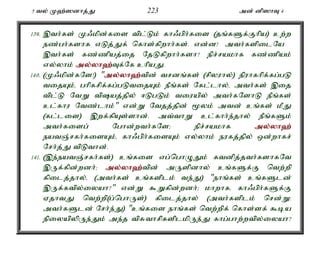 5 வல் முஹ்ஸனாத்து 223 அன் னிஸாவு 4
139. இவர்கள் முஃமின்களை விட்டும் காஃபிர்களை (தங்களுக்குரிய) உற்ற
நண்பர்களாக எடுத்துக் கொள்கிறார்கள். என்ன! அவர்களிடையே
இவர்கள் கண்ணியத்தை தேடுகிறார்களா? நிச்சயமாக கண்ணியம்
எல்லாம் அல்லாஹ்வுக்கே உரியது.
140. (முஃமின்களே!) "அல்லாஹ்வின் வசனங்கள் (சிலரால்) நிராகரிக்கப்படு
வதையும், பரிகசிக்கப்படுவதையும் நீங்கள் கேட்டால், அவர்கள் இதை
விட்டு வேறு விஷயத்தில் ஈடுபடும் வரையில் அவர்களோடு நீங்கள்
உட்கார வேண்டாம்" என்று வேதத்தின் மூலம் அவன் உங்கள் மீது
(கட்டளை) இறக்கியுள்ளான். அவ்வாறு உட்கார்ந்தால் நீங்களும்
அவர்களைப் போன்றவர்களே; நிச்சயமாக அல்லாஹ்
நயவஞ்சகர்களையும், காஃபிர்களையும் எல்லாம் நரகத்தில் ஒன்றாகச்
சேர்த்து விடுவான்.
141. (இந்நயவஞ்சகர்கள்) உங்களை எப்பொழுதும் கவனித்தவர்களாகவே
இருக்கின்றனர்; அல்லாஹ்வின் அருளினால் உங்களுக்கு வெற்றி
கிடைத்தால், (அவர்கள் உங்களிடம் வந்து) "நாங்கள் உங்களுடன்
இருக்கவில்லையா?" என்று கூறுகின்றனர்; மாறாக, காஃபிர்களுக்கு
ஏதாவது வெற்றி(ப்பொருள்) கிடைத்தால் (அவர்களிடம் சென்று;
அவர்களுடன் சேர்ந்து) "உங்களை நாங்கள் வெற்றிக் கொள்ளக் கூடிய
நிலையிலிருந்தும் அந்த விசுவாசிகளிடமிருந்து காப்பாற்றவில்லையா?